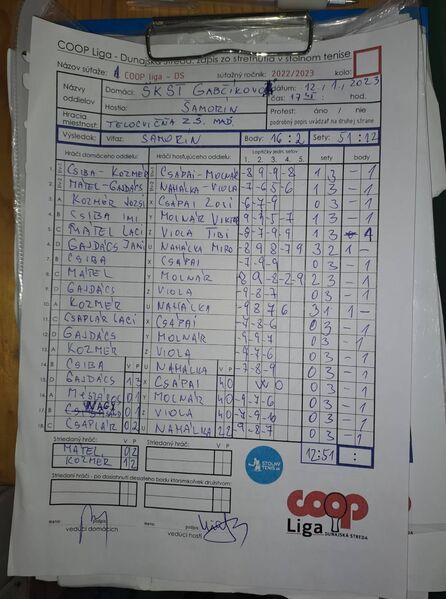 COOP Liga - Dunajská Streda, zápis zo stretnutia v stolnom tenise
Názov súťaže: 1 COOP liga - DS súťažný ročník: 2022/2023 kolo:
Názov oddielov Domáci: ŠKŠT GABČÍKOVO Dátum: 12/1.2023
Hostia: ŠAMORIN čas:
Hracia miestnosť TELOCVIČŇA ZŠ. MAĎ Protest: áno / nie
podrobný popis uvádzať na druhej strane
Výsledok: Víťaz: ŠAMORIN Body: 16:2 Sety: 51:12
Hráči domáceho oddielu Hráči hosťujúceho oddielu Loptičky jedn. setov sety body
1. 2. 3. 4. 5.
CSIBA - KOZMÉR CSAPAI - MOLNÁR -8 9 -9 -8 1 3 - 1
MATEL - GAJDÁCS NAHÁLKA - VIOLA 1 3 - 1
KOZMÉR JOZSI X CSÁPAI ZOLI 0 3 - 1
CSIBA IMI Y MOLNÁR VIKTOR 1 3 - 1
MATEL LACI Z VIOLA TIBI 1 3 1
GAJDÁCS JANI U NAHÁLKA MIRO -8 9 8 -7 9 3 2 1 -
CSIBA X CSAPAI -7 -9 -9 0 3 - 1
MATEL Y MOLNÁR 8 9 -8 -2 -9 2 3 - 1
GAJDÁCS Z VIOLA -9 -8 -7 0 3 - 1
KOZMÉR U NAHÁLKA -9 8 7 6 3 1 1 -
CSAPLÁR LACI X CSAPAI -7 -8 -6 0 3 - 1
GAJDÁCS Y MOLNÁR -9 -9 -7 0 3 - 1
KOZMÉR Z VIOLA -9 -7 -6 0 3 - 1
CSIBA V P U NAHÁLKA V P -7 -8 -8 0 3 - 1
GAJDÁCS 1 3 X CSAPAI 4 0 W O 0 3 - 1
0 1 Y MOLNÁR 4 0 -9 -7 -6 0 3 - 1
NAGY 0 1 Z VIOLA 4 0 -7 -9 -10 0 3 - 1
CSAPLÁR 0 2 U NAHÁLKA 2 2 -9 -8 -7 0 3 - 1
Striedaný hráč: V P Striedaný hráč: V P 12:51 :
MATEL 0 2
KOZMÉR 1 2
STOLNÝ TENIS
Striedaní hráči - po dosiahnutí desiateho bodu ktorýmkoľvek družstvom:
coop
Liga DUNAJSKÁ STREDA
meno: podpis meno: podpis
vedúci domácich vedúci hostí